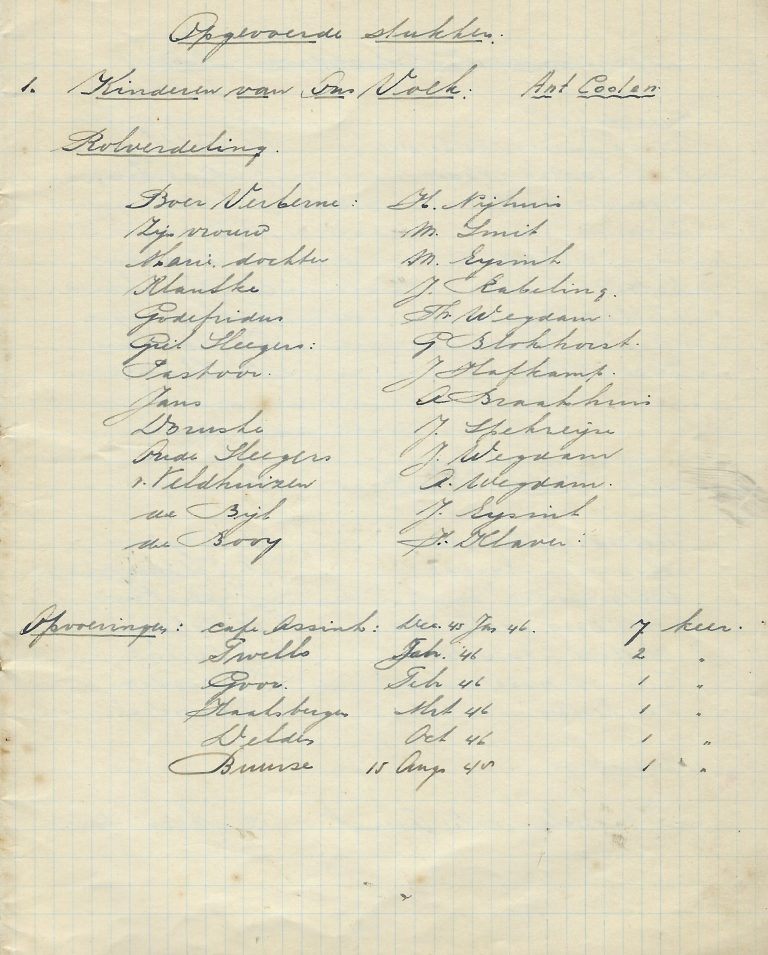 Opgevoerde stukken.
1. Kinderen van Ons Volk. Ant Coolen.
Rolverdeling.
Boer Verberne: H. Nijhuis
Zijn vrouw M. Smit
Marie, dochter M. Eysink
Klauske J. Rabeling.
Godefridus Th. Wegdam
Giel Sleegers: G Blokhorst.
Pastoor. J Hafkamp.
Jans A Braakhuis
Doruske J. Spekreijse
Oude Sleegers J. Wegdam
v. Veldhuizen A. Wegdam.
de Bijl J. Eysink
de Booy F. Klaver:
Opvoeringen: café Assink: Dec. 45 Jan 46. 7 keer.
Twello Febr. 46 2 "
Goor. Febr 46 1 "
Haaksbergen Mrt 46 1 "
Delden Oct 46 1 "
Buurse 15 Aug 45 1 "